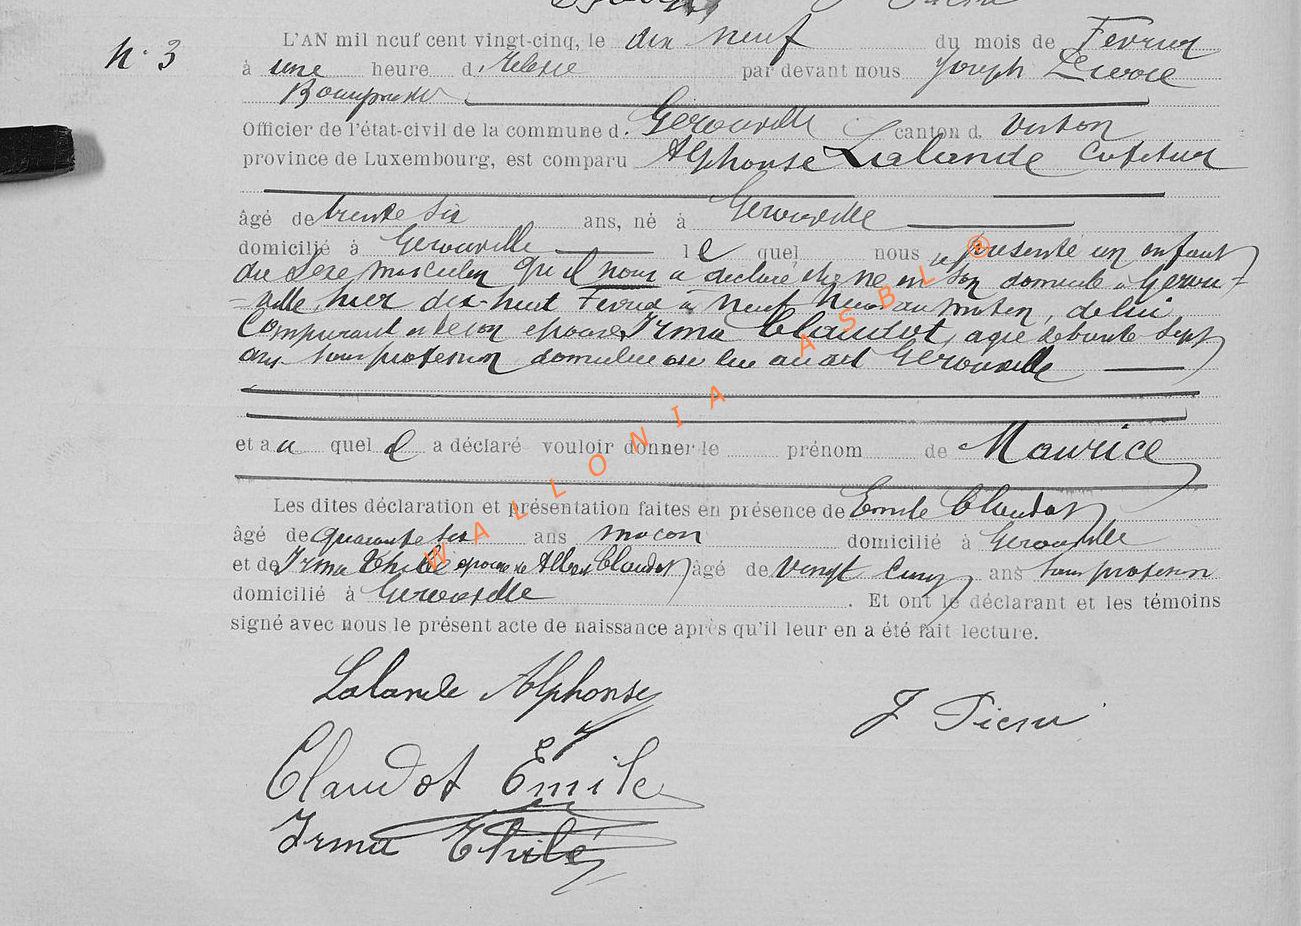 N° 3
L'AN mil neuf cent vingt-cinq, le dix neuf du mois de Fevrier
à une heure d. relevée par devant nous Joseph
Bourgmestre
Officier de l'état-civil de la commune d. Gerouville canton d. Virton
province de Luxembourg, est comparu Alphonse Lalande Cultivateur
âgé de trente six ans, né à Gerouville
domicilié à Gerouville le quel nous a presenté un enfant
du sexe masculin qu'il nous a declaré etre né en son domicile à Gerou=
=ville hier dix-huit Fevrier à neuf heures du matin, de lui
Comparant et de son epouse Irma Claudot, agée de trente sept
ans sans profession domiciliée au lieu au dit Gerouville
et au quel il a déclaré vouloir donner le prénom de Maurice
Les dites déclaration et présentation faites en présence de Emile Claudot
âgé de quarante six ans maçon domicilié à Gerouville
et de Irma Thilé epouse de Albert Claudot âgé de vingt cinq ans sans profession
domicilié à Gerouville. Et ont le déclarant et les témoins
signé avec nous le présent acte de naissance après qu'il leur en a été fait lecture.
Lalande Alphonse
J
Claudot Emile
Irma Thilé
WALLONIA ASBL ®